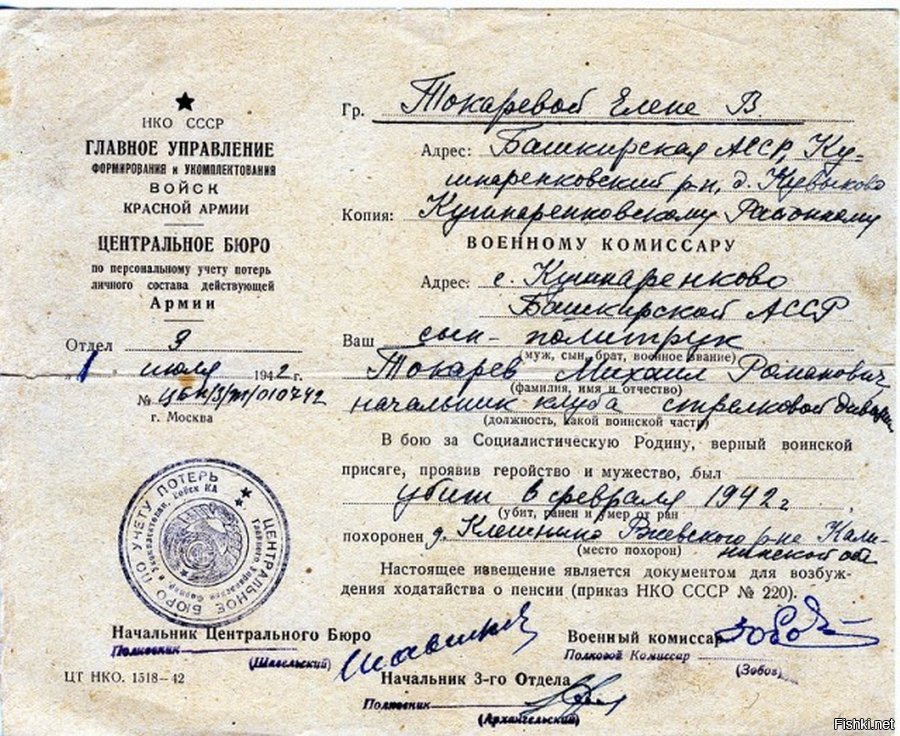 НКО СССР
ГЛАВНОЕ УПРАВЛЕНИЕ
ФОРМИРОВАНИЯ и УКОМПЛЕКТОВАНИЯ
ВОЙСК
КРАСНОЙ АРМИИ
ЦЕНТРАЛЬНОЕ БЮРО
по персональному учету потерь
личного состава действующей
Армии
Отдел 9
1 июля 1942 г.
№
г. Москва
Гр. Токаревой Елене В.
Адрес: Башкирская АССР, Ку-
шнаренковский р-н, д. Кувыково
Копия: Кушнаренковскому Районному
ВОЕННОМУ КОМИССАРУ
Адрес: с. Кушнаренково
Башкирской АССР
Ваш сын - политрук
(муж, сын, брат, военное звание)
Токарев Михаил Романович
(фамилия, имя и отчество)
начальник клуба стрелковой дивизии
(должность, какой воинской части)
В бою за Социалистическую Родину, верный воинской
присяге, проявив геройство и мужество, был
убит в феврале 1942 г
(убит, ранен и умер от ран
похоронен д. Клешнино Ржевского р-на Кали-
нинской обл
(место похорон)
Настоящее извещение является документом для возбуж-
дения ходатайства о пенсии (приказ НКО СССР № 220).
ЦЕНТРАЛЬНОЕ БЮРО ПО УЧЕТУ ПОТЕРЬ
Начальник Центрального Бюро
Полковник
(Шавельский)
Военный комиссар
Полковой Комиссар
(Зобов)
ЦТ НКО. 1518–42
Начальник 3-го Отдела
Полковник
(Архангельский)
Fishki.net